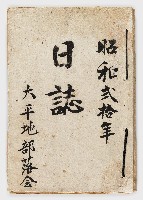 昭和弐拾年
日誌
大平地部落会